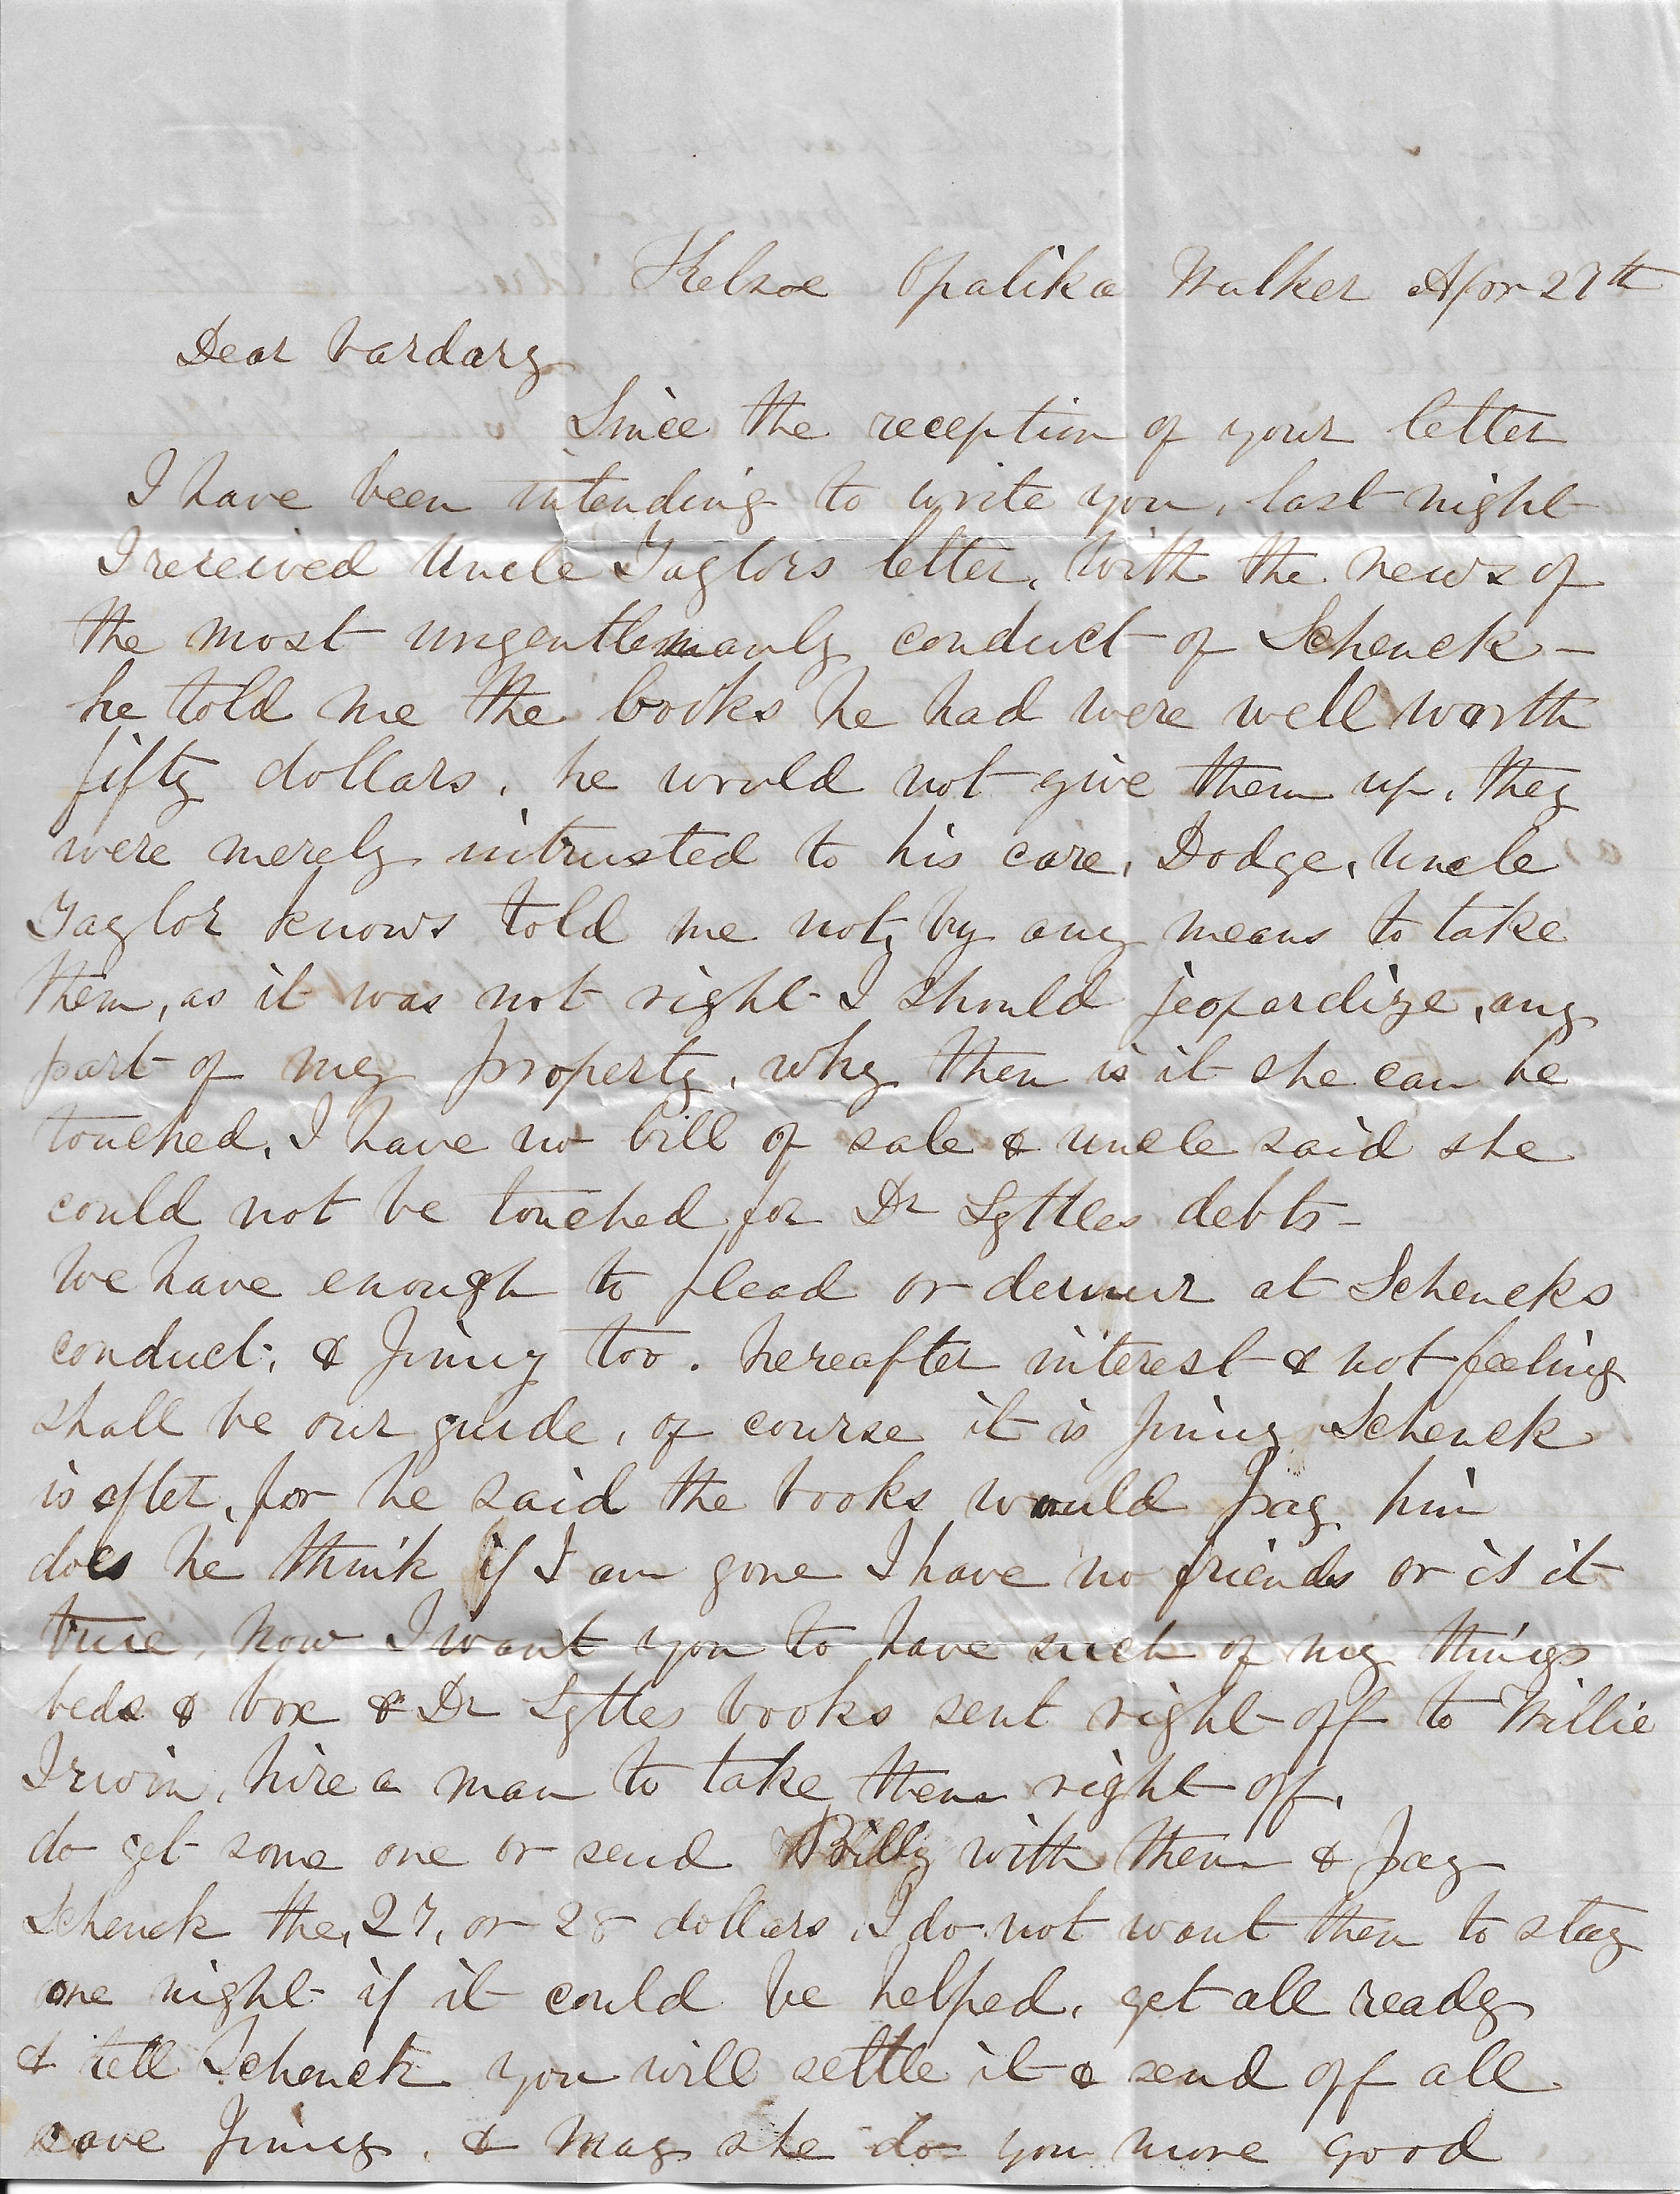 Kelsoe Opalika Walker Apr 27th
Dear Vardary
Since the reception of your letter
I have been intending to write you, last night
I received Uncle Taylors letter, with the news of
the most ungentlemanly conduct of Schenck –
he told me the books he had were well worth
fifty dollars, he would not give them up, they
were merely intrusted to his care, Dodge, Uncle
Taylor knows told me not, by any means to take
them, as it was not right I should jeopardize, any
part of my property, why then is it she can be
touched, I have no bill of sale & uncle said she
could not be touched for Dr Lyttles debts –
We have enough to plead or demur at Schencks
conduct, & Jinny too. hereafter interest & not feeling
shall be our guide, of course it is Jinny Schenck
is after, for he said the books would pay him
does he think if I am gone I have no friends or is it
true, now I want you to have such of my things
beds & box & Dr Lyttles books sent right off to Willie
Irwin, hire a man to take them right off.
do get some one or send Billy with them & pay
Schenck the, 27, or 28 dollars, I do not want them to stay
one night if it could be helped, get all ready
& tell Schenck you will settle it & send off all
save Jinny, & may she do you more good